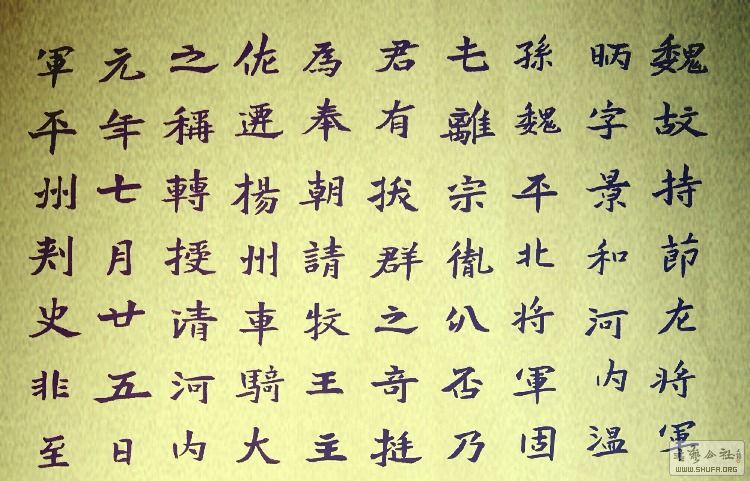 魏故持節左将軍
昞字景和河内温
孫魏平北将軍固
七離宗胤公否乃
君有拔群之奇挺
為奉朝請牧王主
佐遷楊州車騎大
之稱轉授清河内
元年七月廿五日
軍平州刾史非至
WWW.SHUFA.ORG